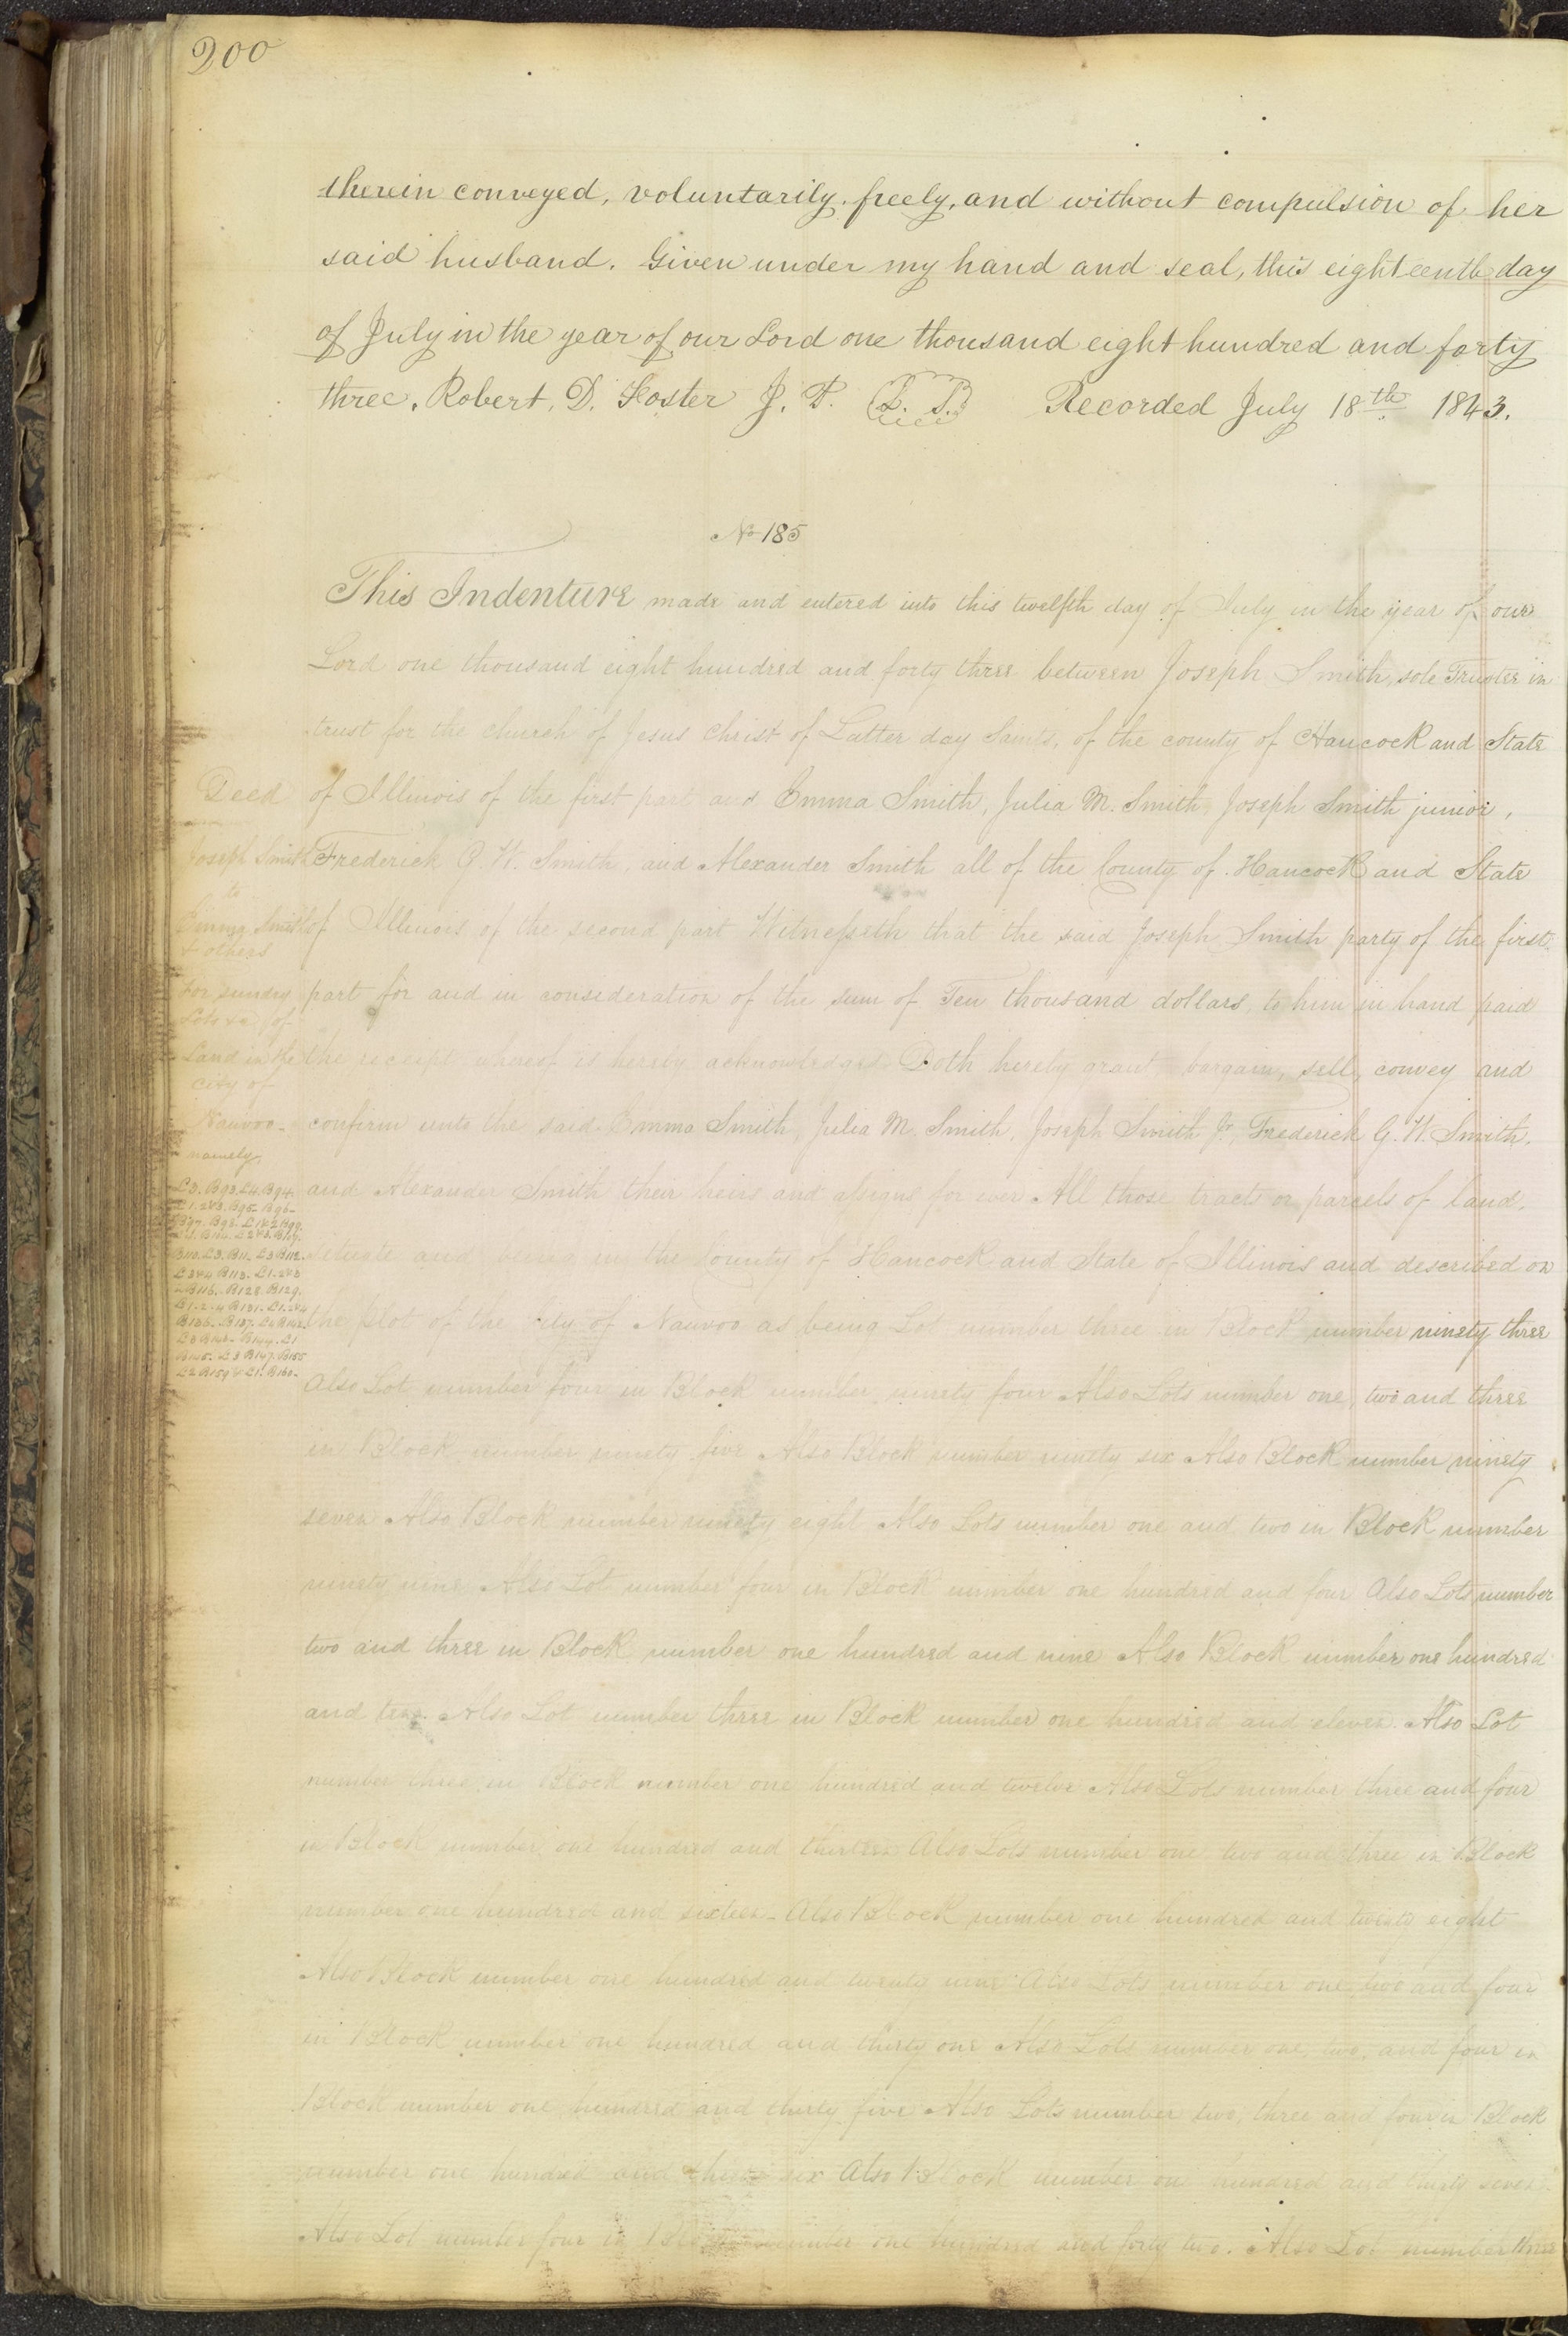 200
therein conveyed, voluntarily, freely, and without compulsion of her
said husband. Given under my hand and seal, this eighteenth day
of July in the year of our Lord one thousand eight hundred and forty
three. Robert. D. Foster J. P. (L. S.) Recorded July 18th 1843.
No 185
This Indenture made and entered into this twelfth day of July in the year of our
Lord one thousand eight hundred and forty three between Joseph Smith, sole Trustee in
trust for the church of Jesus Christ of Latter day Saints, of the county of Hancock and State
of Illinois of the first part and Emma Smith, Julia M. Smith, Joseph Smith junior,
Frederick G. W. Smith, and Alexander Smith all of the County of Hancock and State
of Illinois of the second part Witnesseth that the said Joseph Smith party of the first
part for and in consideration of the sum of Ten thousand dollars, to him in hand paid
the receipt whereof is hereby acknowledged Doth hereby grant, bargain, sell, convey and
confirm unto the said Emma Smith, Julia M. Smith, Joseph Smith Jr, Frederick G. W. Smith,
and Alexander Smith their heirs and assigns for ever All those tracts or parcels of land,
situate and being in the County of Hancock and State of Illinois and described on
the plot of the City of Nauvoo as being Lot number three in Block number ninety three
Also Lot number four in Block number ninety four Also Lots number one, two and three
in Block number ninety five Also Block number ninety six Also Block number ninety
seven Also Block number ninety eight Also Lots number one and two in Block number
ninety nine Also Lot number four in Block number one hundred and four Also Lots number
two and three in Block number one hundred and nine Also Block number one hundred
and ten. Also Lot number three in Block number one hundred and eleven. Also Lot
number three in Block number one hundred and twelve Also Lots number three and four
in Block number one hundred and thirteen Also Lots number one two and three in Block
number one hundred and sixteen - Also Block number one hundred and twenty eight
Also Block number one hundred and twenty nine Also Lots number one two and four
in Block number one hundred and thirty one Also Lots number one, two, and four in
Block number one hundred and thirty five Also Lots number two, three and four in Block
number one hundred and thirty six Also Block number one hundred and thirty seven
Also Lot number four in Block number one hundred and forty two. Also Lot number three
Deed
Joseph Smith
to
Emma Smith
& others
for sundry
Lots &c of
Land in the
city of
Nauvoo-
namely,
L3. B93. L4. B94.
L1.2&3. B95. B96-
B97. B98. L1&2 B99.
B110. L3. B11. L3 B112.
L3&4 B113. L1.2&3
B116. B128. B129.
L1.2.4 B131.
B136. B137. L4 B142.
L3 B143. B144. L1
B145. L3 B147. B155
L2 B159 & L1. B160-